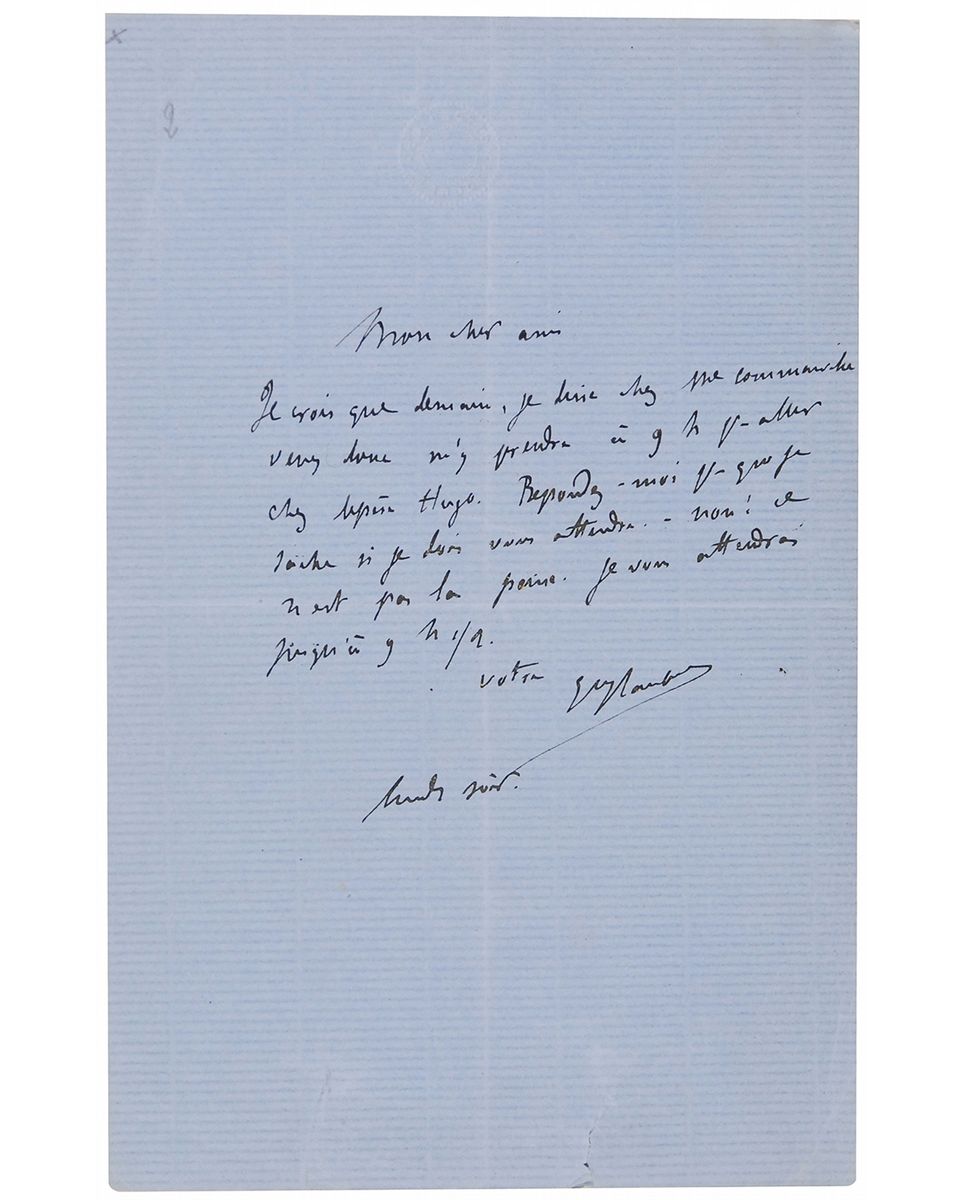 Mon cher ami
Je crois que demain, je dine chez Mme Commanville
venez donc m'y prendre à 9 h pr aller
chez le père Hugo. Répondez-moi pr que je
sache si je dois vous attendre. - non! ce
n'est pas la peine. Je vous attendrai
jusqu'à 9 h 1/2.
votre
lundi soir.